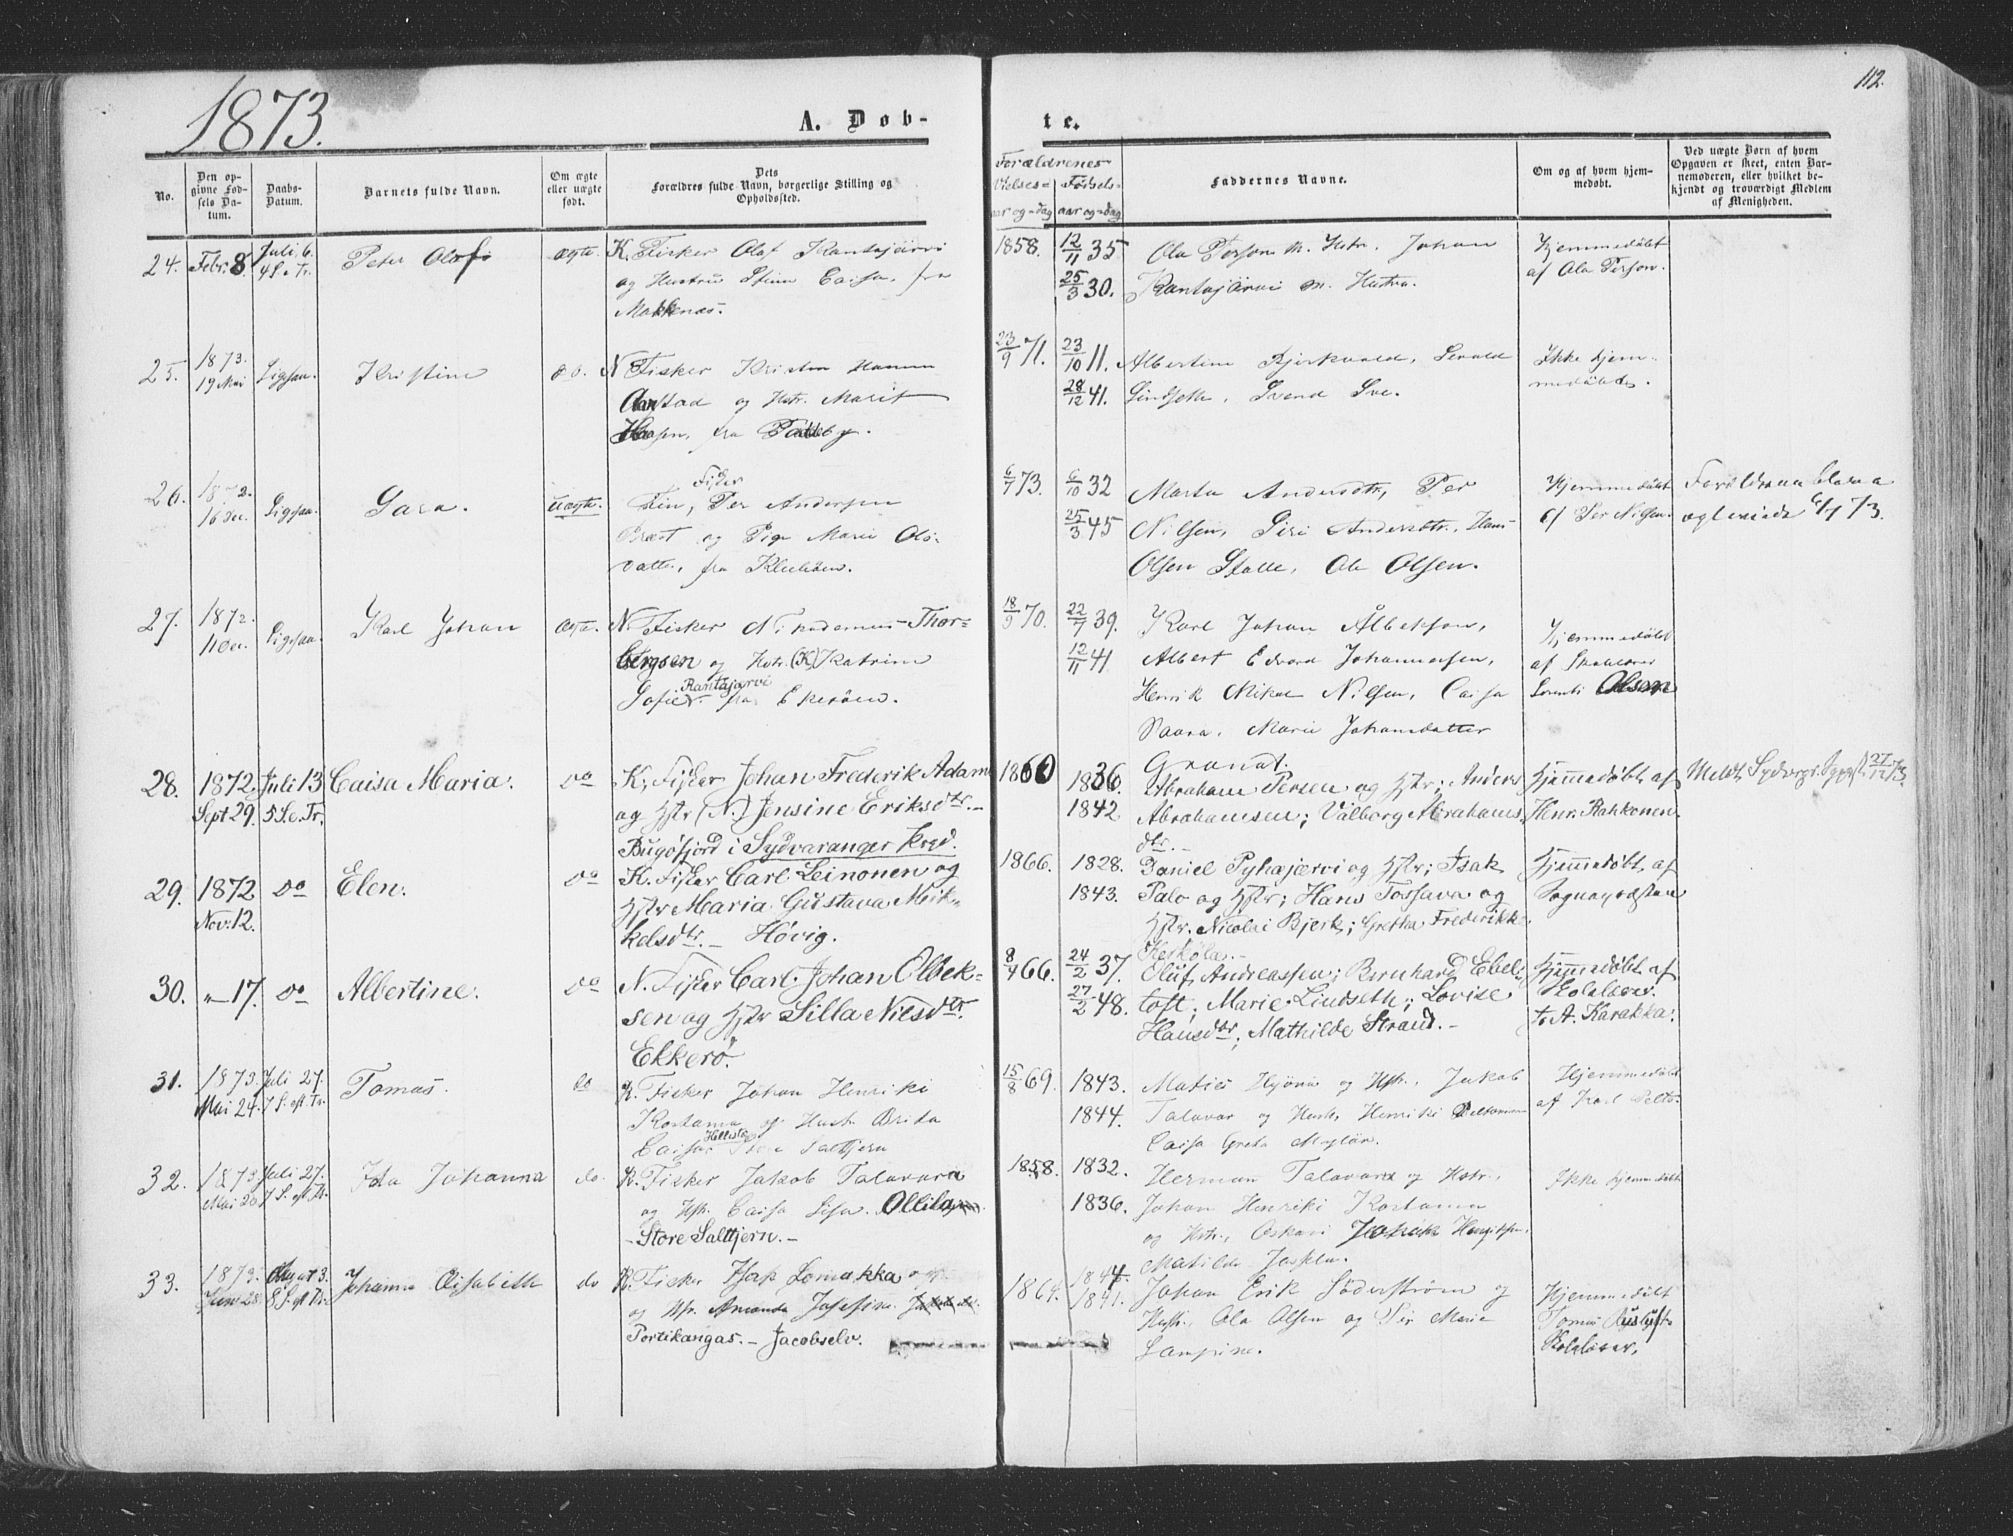 112.
1873.
A. Døb-
te.
No.
Den op-
givne Fød-
sels Da-
tum.
Daabs-
Datum.
Barnets fulde Navn.
Om ægte
eller uægte
født.
Dets
Forældres fulde Navn, borgerlige Stilling og
Opholdssted.
Forældrenes
Vielses-
aar og -dag
Fødsels-
aar og -dag
Faddernes Navne.
Om og af hvem hjem-
medøbt.
Ved uægte Børn af hvem
Opgaven er skeet, enten Bar-
nemoderen, eller hvilket be-
kjendt og troværdigt Medlem
af Menigheden.
24. Febr. 8. Juli 6. Peter Olaf ægte. K. Fisker Olaf Rantajärvi
4 S. e Tr. og Hustru Stina Caisa, fra
Makkenæs.
1858. 12/11 35. Ola Person m. Hstr. Johan
25/3 30. Rantajärvi m. Hustru.
Hjemmedøbt
af Ola Person.
25. 1873. 19 Mai Ligesaa. Kristine do. N. Fisker Kristen Hansen
Aarstad og Hstr. Marit
fra Vadsø by.
23/9 71. 23/10 11. Albertine Bjerkvold, Sevald
28/12 41. Lindseth, Svend Sve.
Ikke hjem-
medøbt.
26. 1872. 16 Dec. Ligesaa. Sara. uægte. Fisker
Fin, Per Andersen
og Pige Marie Ols-
datter, fra
6/7 73. 6/10 32 Marta Andersdtr, Per
25/3 45 Nilsen, Siri Andersdtr., Hans
Olsen Stalle, Ole Olsen.
Hjemmedøbt
af Per Nilsen.
Forældrene
6/7 73.
27. 1872. 11 Dec. Ligesaa. Karl Johan ægte. N. Fisker Nikodemus Thor-
bergsen og Hstr. (K) Katrine
Sofie Rantajærvi fra Ekerøen.
18/9 70. 22/7 39. Karl Johan Ålbekson,
12/11 41 Albert Edvard Johannesen,
Henrik Mikal Nilsen, Caisa
Vaara, Marie Johansdatter
Grandt.
Hjemmedøbt
af Skolelærer
Olsen
28. 1872 Juli 13 Caisa Maria. do K. Fisker Johan Frederik Adam
Sept 29. 5 S. e. Tr. og Hstr (N.) Jensine Eriksdtr. -
Bugøfjord i Sydvaranger Prgd.
1860 1836. Abraham Persen og Hstr; Anders
1842 Abrahamsen; Valborg Abrahams-
dtr. -
Hjemmedøbt af
Henr. Bahkonen.
Meldt Sydvgr. Sgpst. 27/12 73.
29. 1872 do Elen. do K. Fisker Carl Leinonen og
Nov: 12. Hstr Maria Gustava Mik-
kelsdtr. - Høvig.
1866. 1828. Daniel Pyhæjærvi og Hstr; Isak
1843. Palo og Hstr; Hans Tossava og
Hstr. Nicolai Bjerk; Gretha Frederikke
Keskola. -
Hjemmedøbt af
Sognepræsten
30. " 17. do Albertine. do N. Fisker Carl Johan Olbek-
sen og Hstr Silla Nilsdtr.
Ekkerø.
8/4 66. 24/2 37. Oluf Andreassen; Bernhard Ebel-
27/2 48. toft; Marie Lindseth; Lovise
Hansdtr; Mathilde Strand. -
Hjemmedøbt af
Skolelærer
A. Karakka.
31. 1873. Juli 27. Tomas. do K. Fisker Johan Henriki
Mai 24. 7 S. eft. Tr. Kostama og Hustr. Brita
Caisa Store Saltjern
15/8 69. 1843. Matias Hyöna og Hstr., Jakob
1844. Talavar og Hustr, Henriki Peltonen
Caisa Greta
Hjemmedøbt
af Karl Pelto-
32. 1873 Juli 27. Ida Johanna do. K. Fisker Jakob Talavara
Mai 20 7 S. eft. Tr. og Hstr. Caisa Lisa Ollila
- Store Saltjern. -
1858. 1832. Herman Talavara og Hstr.,
1836. Johan Henriki Kostama
og Hstr., Oskar
Matilda
Ikke hjemmedøbt
33. 1873. August 3. Johanna Elisabeth do K. Fisker Isak Lomakka
Juni 28 8 S. eft Tr. og Hstr. Amanda Josefina
Portikangas. - Jacobselv.
1864. 1844. Johan Erik Söderström og
1841. Hustr., Ola Olsen og Per Marie
Lampine.
Hjemmedøbt
Tomas
Skolelærer.